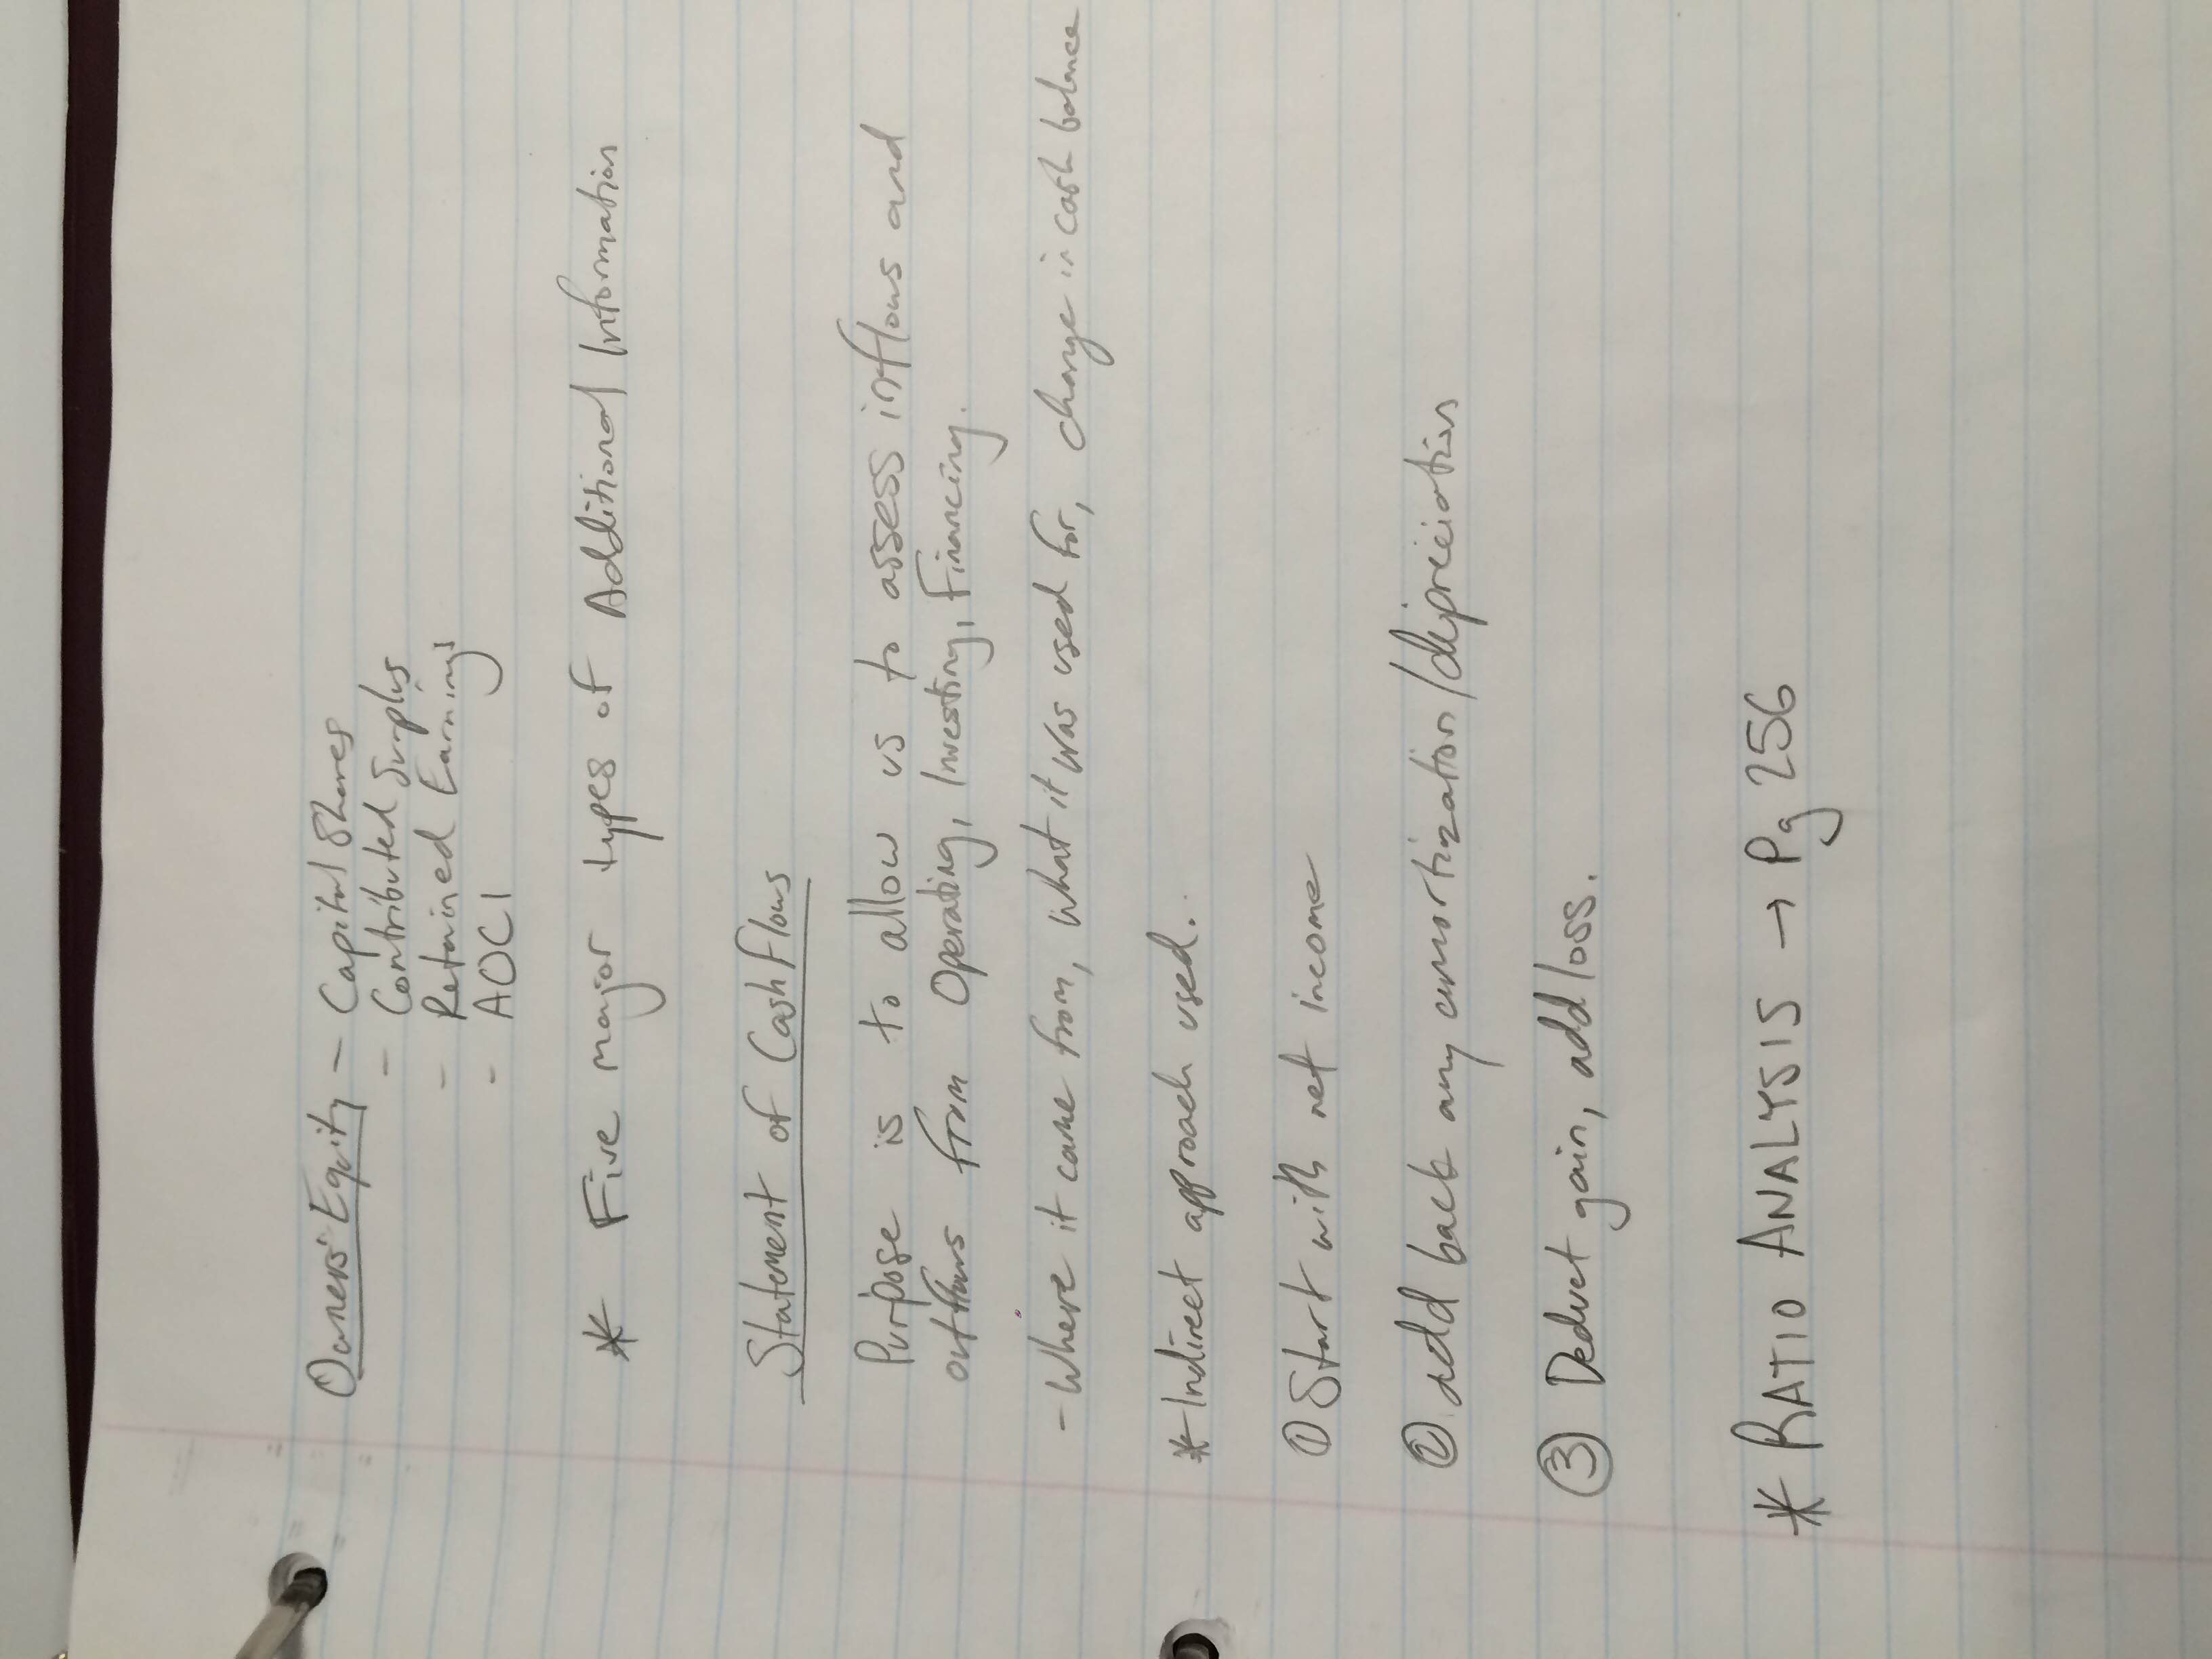 Owners' Equity - Capital Shares
- Contributed Surplus
- Retained Earnings
- AOCI
* Five major types of Additional Information
Statement of Cash Flows
Purpose is to allow us to assess inflows and
outflows from Operating, Investing, Financing.
- Where it came from, what it was used for, change in cash balance
* Indirect approach used.
① Start with net income
② add back any amortization/depreciation
③ Deduct gain, add loss.
* RATIO ANALYSIS → Pg 256